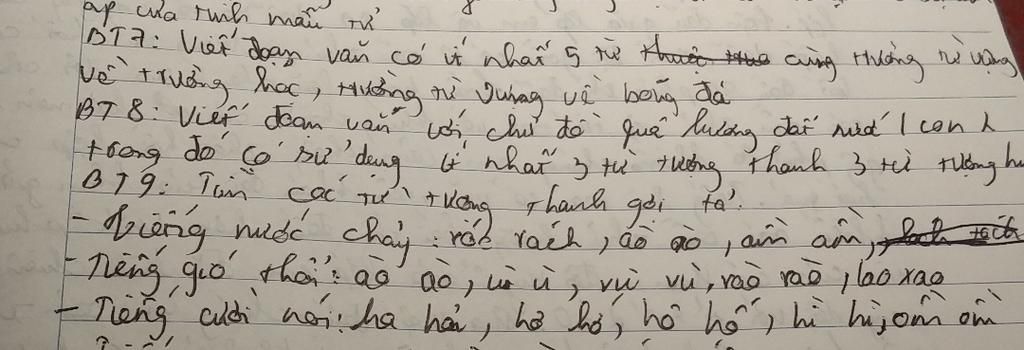 của
BT7: Viết đoạn văn có ít nhất 5 từ cùng trường từ vựng
về trường học, trường từ vựng về bóng đá
BT8: Viết đoạn văn với chủ đề quê hương đất nước / con
trong đó có sử dụng ít nhất 3 từ tượng thanh 3 từ tượng h
BT9: Tìm các từ tượng thanh gợi tả:
- Tiếng nước chảy: róc rách, ào ào, ầm ầm,
- Tiếng gió thổi: ào ào, ù ù, vù vù, rào rào, lao xao
- Tiếng cười nói: ha hả, hơ hớ, hô hố, hì hì, ồm ồm